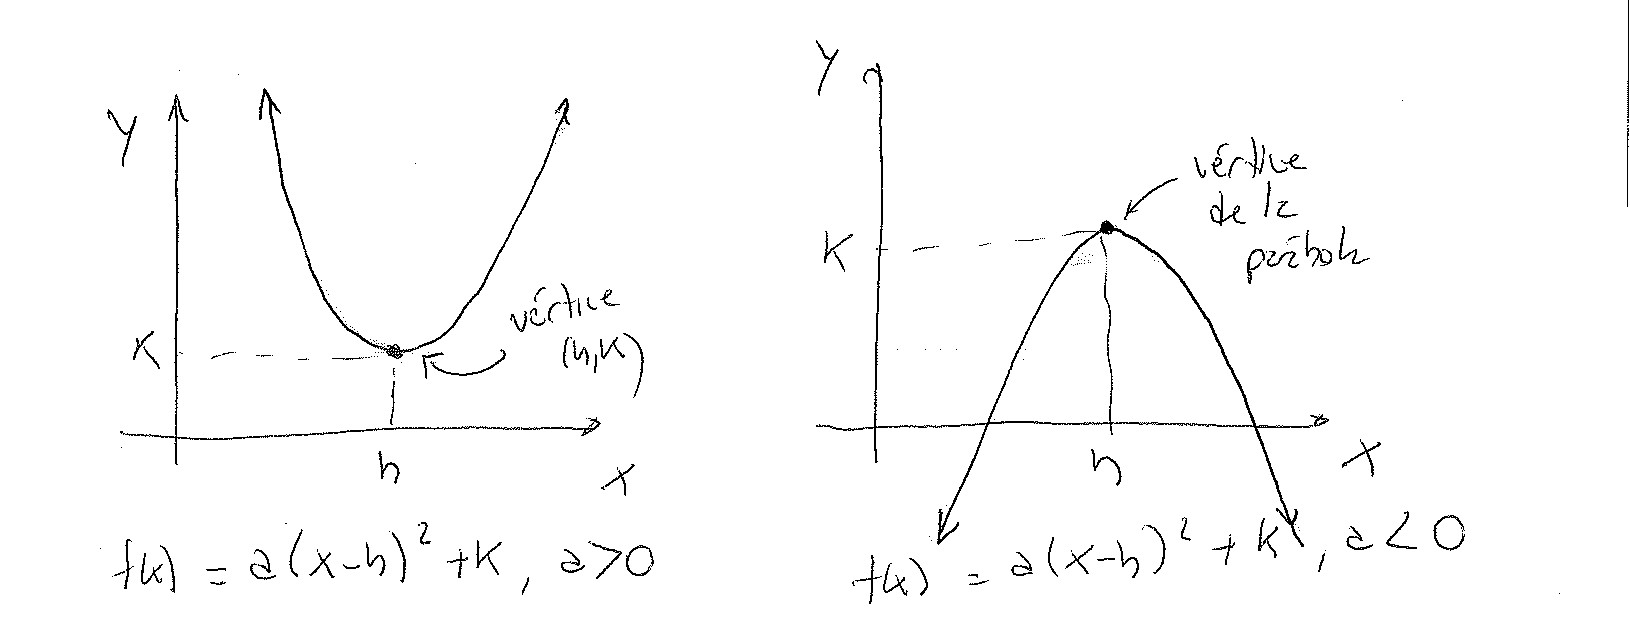 Y
K
vértice
(h,K)
h
x
f(x) = a(x-h)² + K, a>0
Y
K
vértice
de la
parábola
h
x
f(x) = a(x-h)² + K, a<0